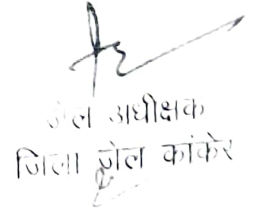 जेल अधीक्षक
जिला जेल कांकेर